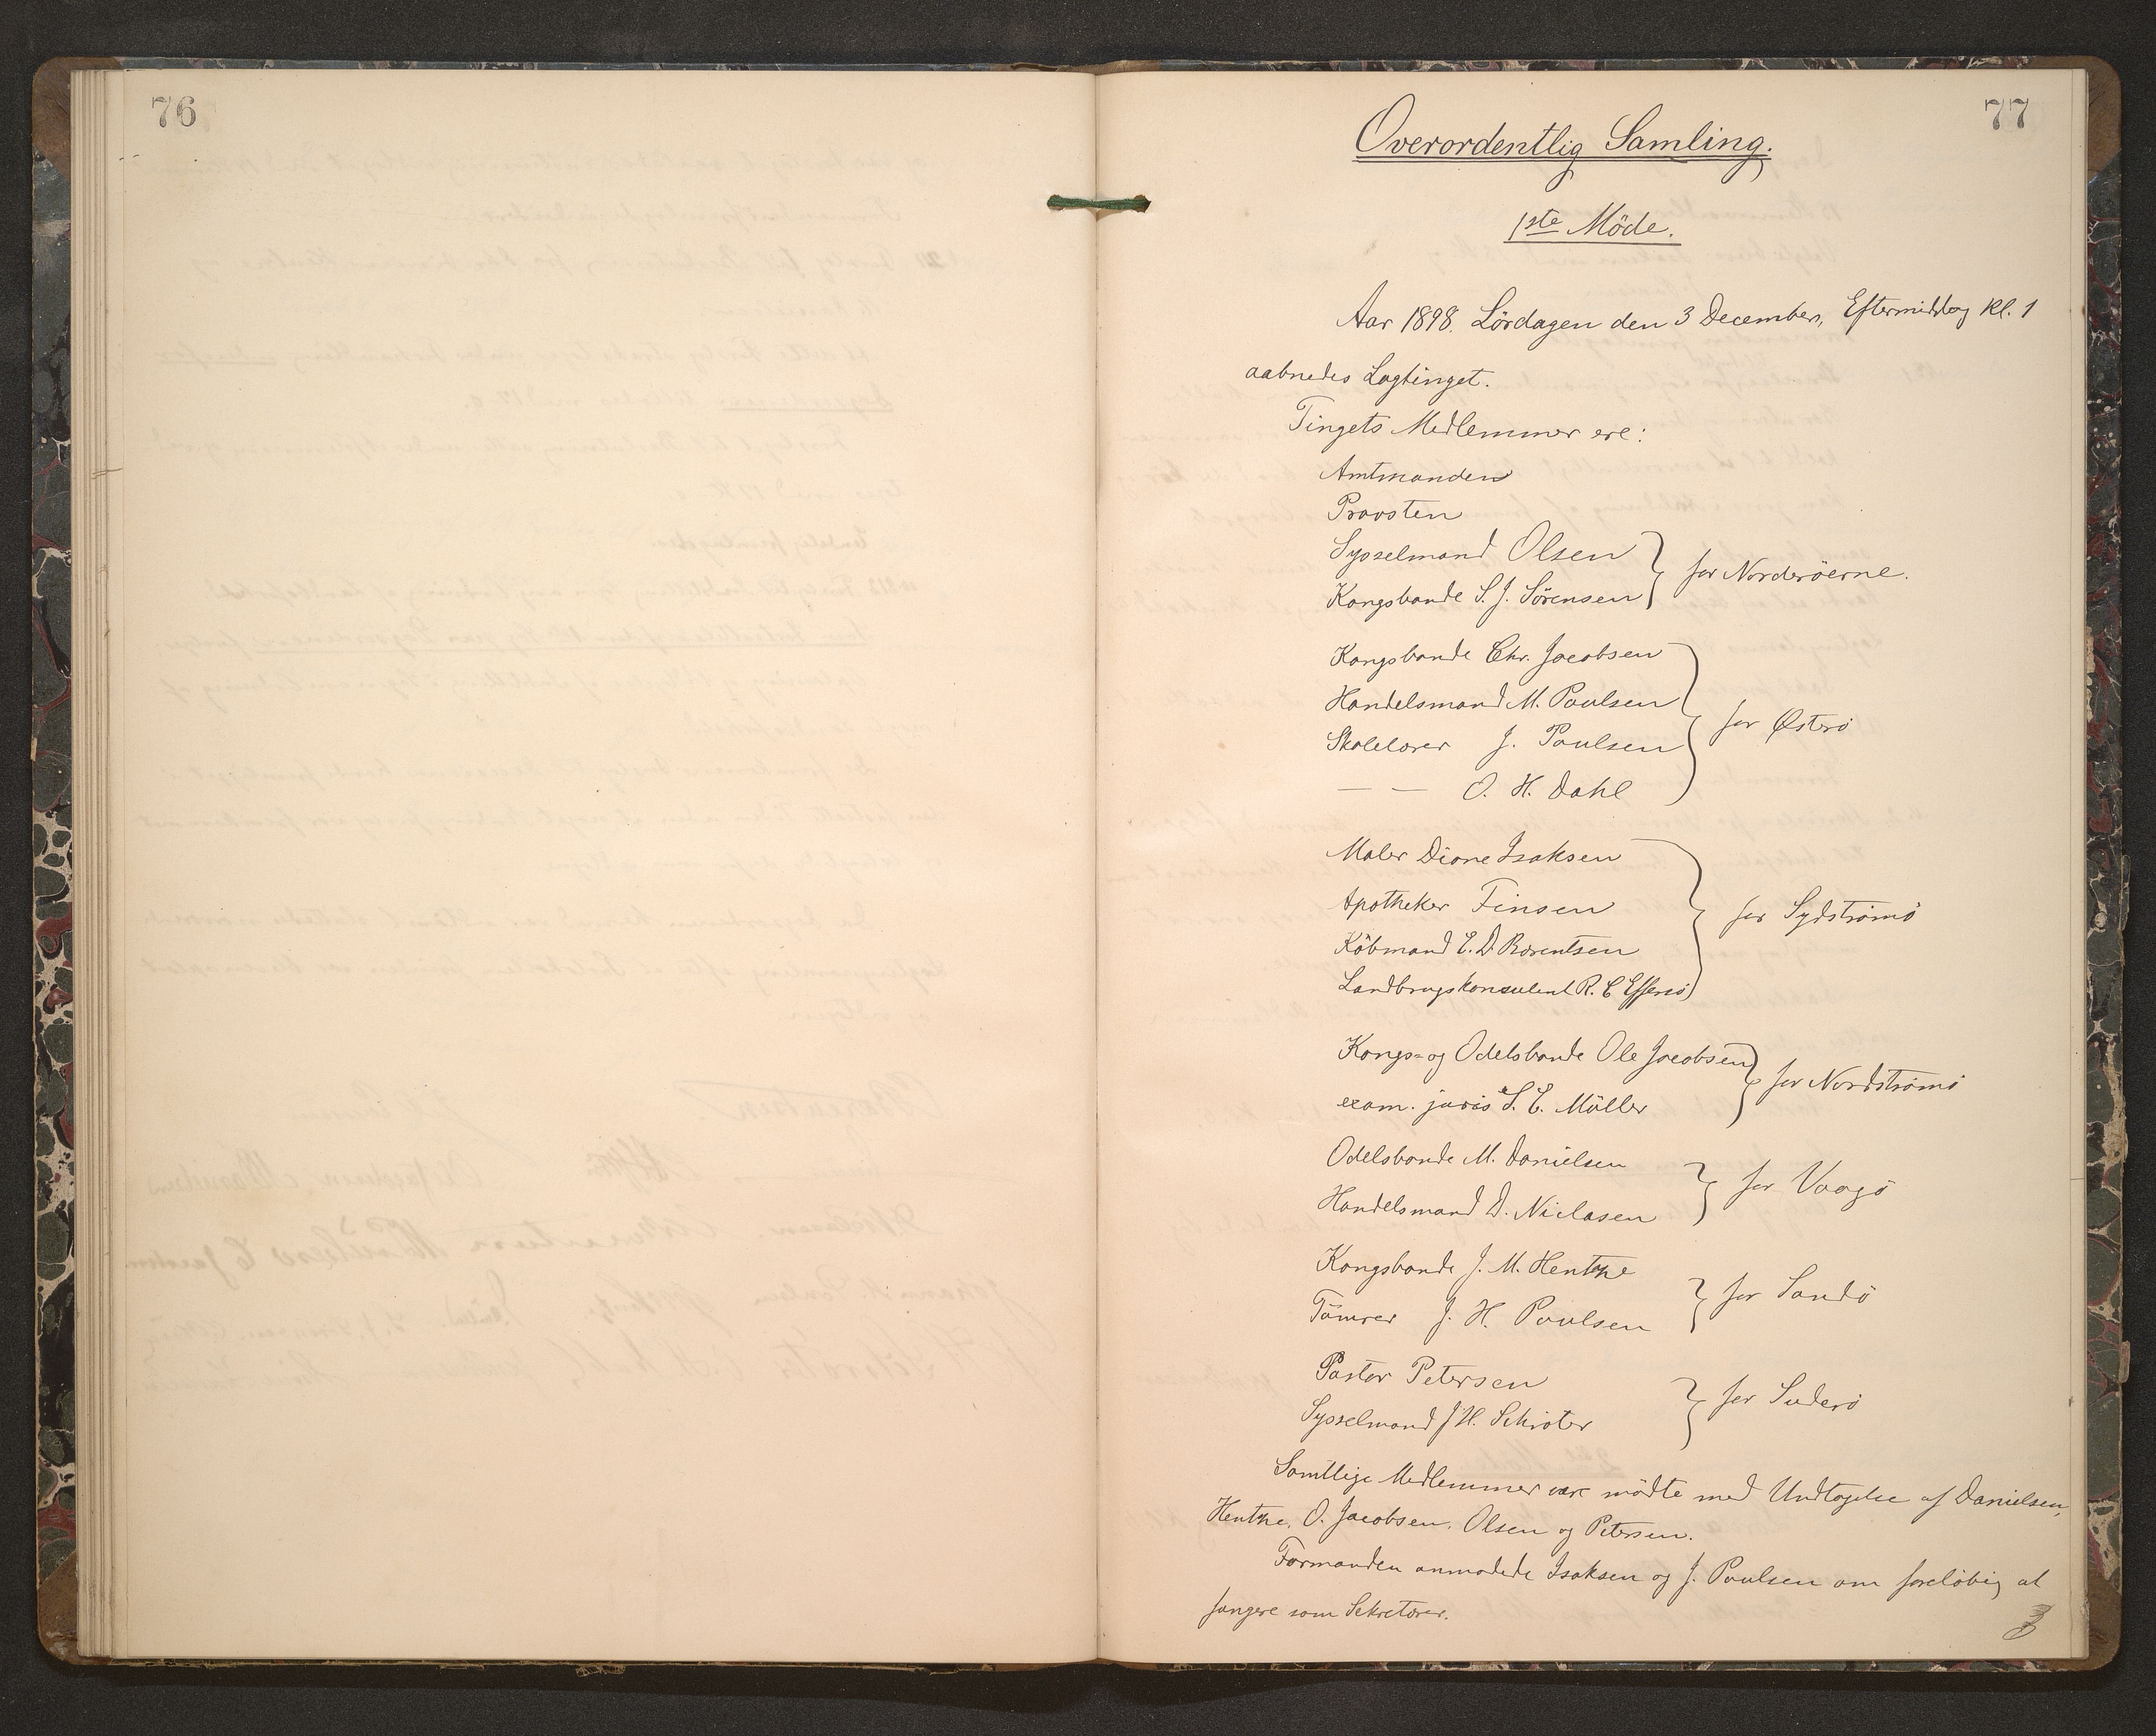 76
77
Overordentlig Samling.
1ste Möde.
Aar 1898. Lördagen den 3 December, Eftermiddag Kl. 1
aabnedes Lagtinget.
Tingets Medlemmer ere:
Amtmanden
Provsten
Sysselmand Olsen
Kongsbonde S. J. Sörensen } for Norderöerne.
Kongsbonde Chr. Jacobsen
Handelsmand M. Poulsen
Skolelærer J. Poulsen } for Østerö
— — O. H. Dahl
Maler Dione Isaksen
Apotheker Finsen } for Sydströmö
Köbmand E. D. Bærentsen
Landbrugskonsulent R. C. Effersö
Kongs- og Odelsbonde Ole Jacobsen } for Nordströmö
exam. juris S. E. Müller
Odelsbonde M. Danielsen } for Vaagö
Handelsmand D. Niclasen
Kongsbonde J. M. Hentze } for Sandö
Tömrer J. H. Poulsen
Pastor Petersen } for Suderö
Sysselmand J. H. Schröter
Samtlige Medlemmer vare mödte med Undtagelse af Danielsen,
Hentze, O. Jacobsen, Olsen og Petersen.
Formanden anmodede Isaksen og J. Poulsen om foreløbig at
fungere som Sekretærer.